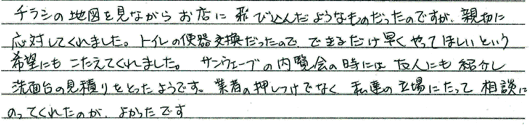 チラシの地図を見ながらお店に飛び込んだようなものだったのですが、親切に
応対してくれました。トイレの便器交換だったので、できるだけ早くやってほしいという
希望にもこたえてくれました。サンウェーブの内覧会の時には友人にも紹介し
洗面台の見積りをとったようです。業者の押しつけでなく私達の立場にたって相談に
のってくれたのが、よかったです